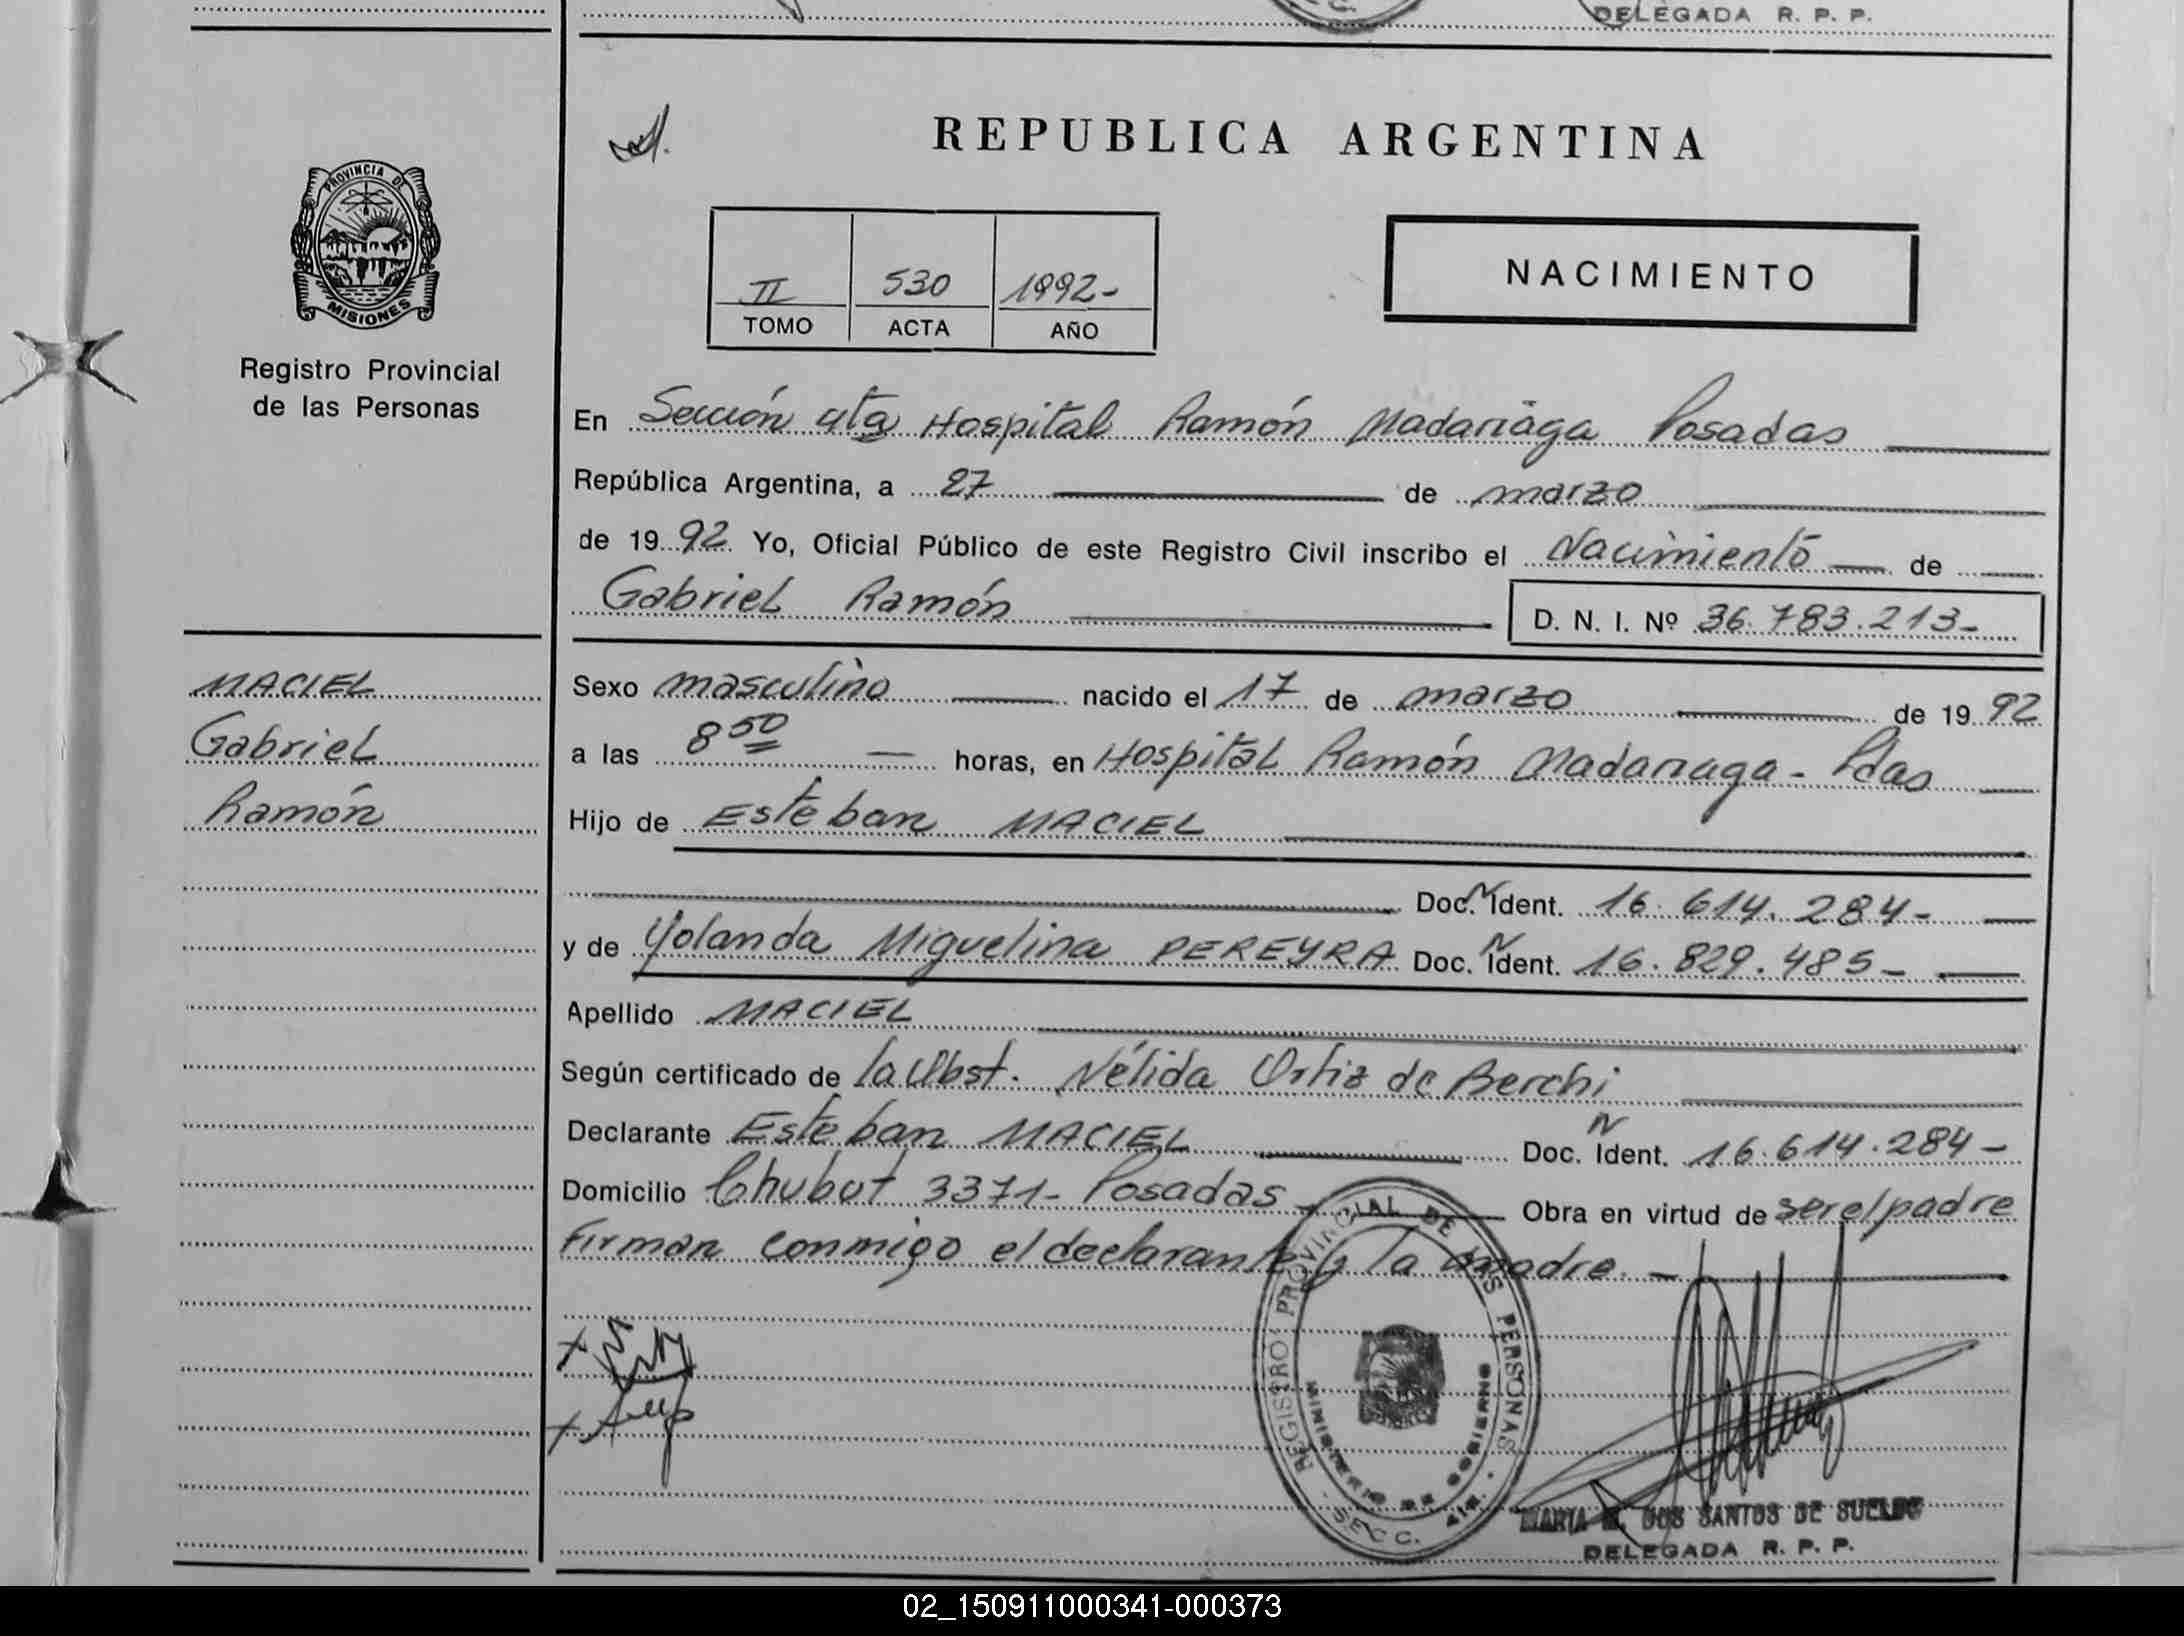 DELEGADA R. P. P.
REPUBLICA ARGENTINA
PROVINCIA DE
MISIONES
Registro Provincial
de las Personas
II 530 1992-
TOMO ACTA AÑO
NACIMIENTO
En Sección 4ta Hospital Ramón Madariaga Posadas
República Argentina, a 27 de marzo
de 1992 Yo, Oficial Público de este Registro Civil inscribo el Nacimiento de
Gabriel Ramón D. N. I. Nº 36.783.213-
MACIEL
Gabriel
Ramón
Sexo masculino nacido el 17 de marzo de 1992
a las 8 50 horas, en Hospital Ramón Madariaga - Pdas
Hijo de Esteban MACIEL
Doc. N Ident. 16.614.284-
y de Yolanda Miguelina PEREYRA Doc. N Ident. 16.829.485-
Apellido MACIEL
Según certificado de la Obst. Nélida Ortiz de Berchi
Declarante Esteban MACIEL Doc. N Ident. 16.614.284-
Domicilio Chubut 3371- Posadas Obra en virtud de ser el padre
Firman conmigo el declarante y la madre.-
REGISTRO PROVINCIAL DE LAS PERSONAS
MINISTERIO DE GOBIERNO
SECC. 4ta.
MARIA DOS SANTOS DE SUELDO
DELEGADA R. P. P.
02_150911000341-000373